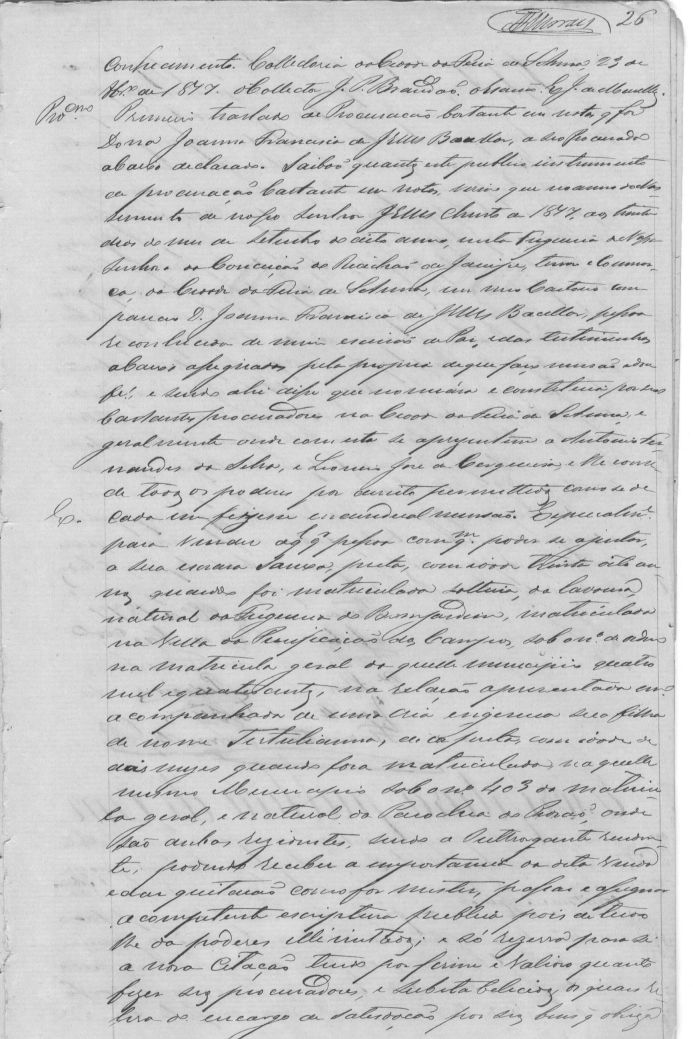 26
Conhecimento. Collectoria da Cidade da Feira de Santanna 23 de
de 1877. O Collector J. P. Brandaõ. o
Primeiro traslado de Procuraçaõ bastante em notas q faz
Dona Joanna Francisca de JESUS Bacellar, a seo Procurador
abaixo declarado. Saibaõ quantos este publico instrumento
de procuraçaõ bastante em notas, virem que no anno do Nas
cimento de nosso Senhor JESUS Christo de 1877, aos trinta
dias do mez de Setembro do dito anno, nesta Freguesia de Nossa
Senhora da Conceiçaõ do Riachaõ de Jacuipe, termo e Comar-
ca, da Cidade da Feira de Santanna, em meo Cartorio com
pareceo D. Joanna Francisca de JESUS Bacellar, pessoa
reconhecida de mim escrivaõ de Paz, e das testimunhas
abaixo assignadas pela propria de que faço mensaõ e dou
fé, e sendo ahi disse que nomeiava e constituia por seos
bastantes procuradores na Cidade da Feira de Santanna, e
geralmente onde com esta se aprezentem a Antonio Fer
nandes da Silva, e José de Cerqueira e lhe conce
de todos os poderes por direito permittidos como se de
cada um fizesse individual mensaõ. Especialm.e
E.
para vender a q.l q.r pessoa com q.m poder se ajustar,
a sua escrava preta, com idade trinta oito an
nos, quando foi matriculada solteira, da lavoura,
natural da Freguesia do Bom Jardim, matriculada
na Villa da Purificaçaõ dos Campos, sob o n.o de ordem
na matricula geral da quelle municipio quatro
mil e quatrocentos, na relaçaõ apresentada
acompanhada de uma cria engenua seo filho
de nome Tertulianna, de cor preta, com idade de
dois mezes quando fora matriculada na quelle
mesmo Municipio sob o n.o 403 da matricu
la geral, e natural da Parochia do onde
saõ ambas rezidentes, sendo a Outhorgante
te, podendo receber a importancia da dita venda
e dar quitacaõ como for mister, passar e assignar
a competente escriptura publica pois de tudo
lhe da poderes illimitados; e só rezerva para si
a nova Citaçaõ tendo por firme e Valioso quanto
fizer seos procuradores, e Substabelecidos, os quais re
leva do encargo de satisdaçaõ por seos bens q obriga